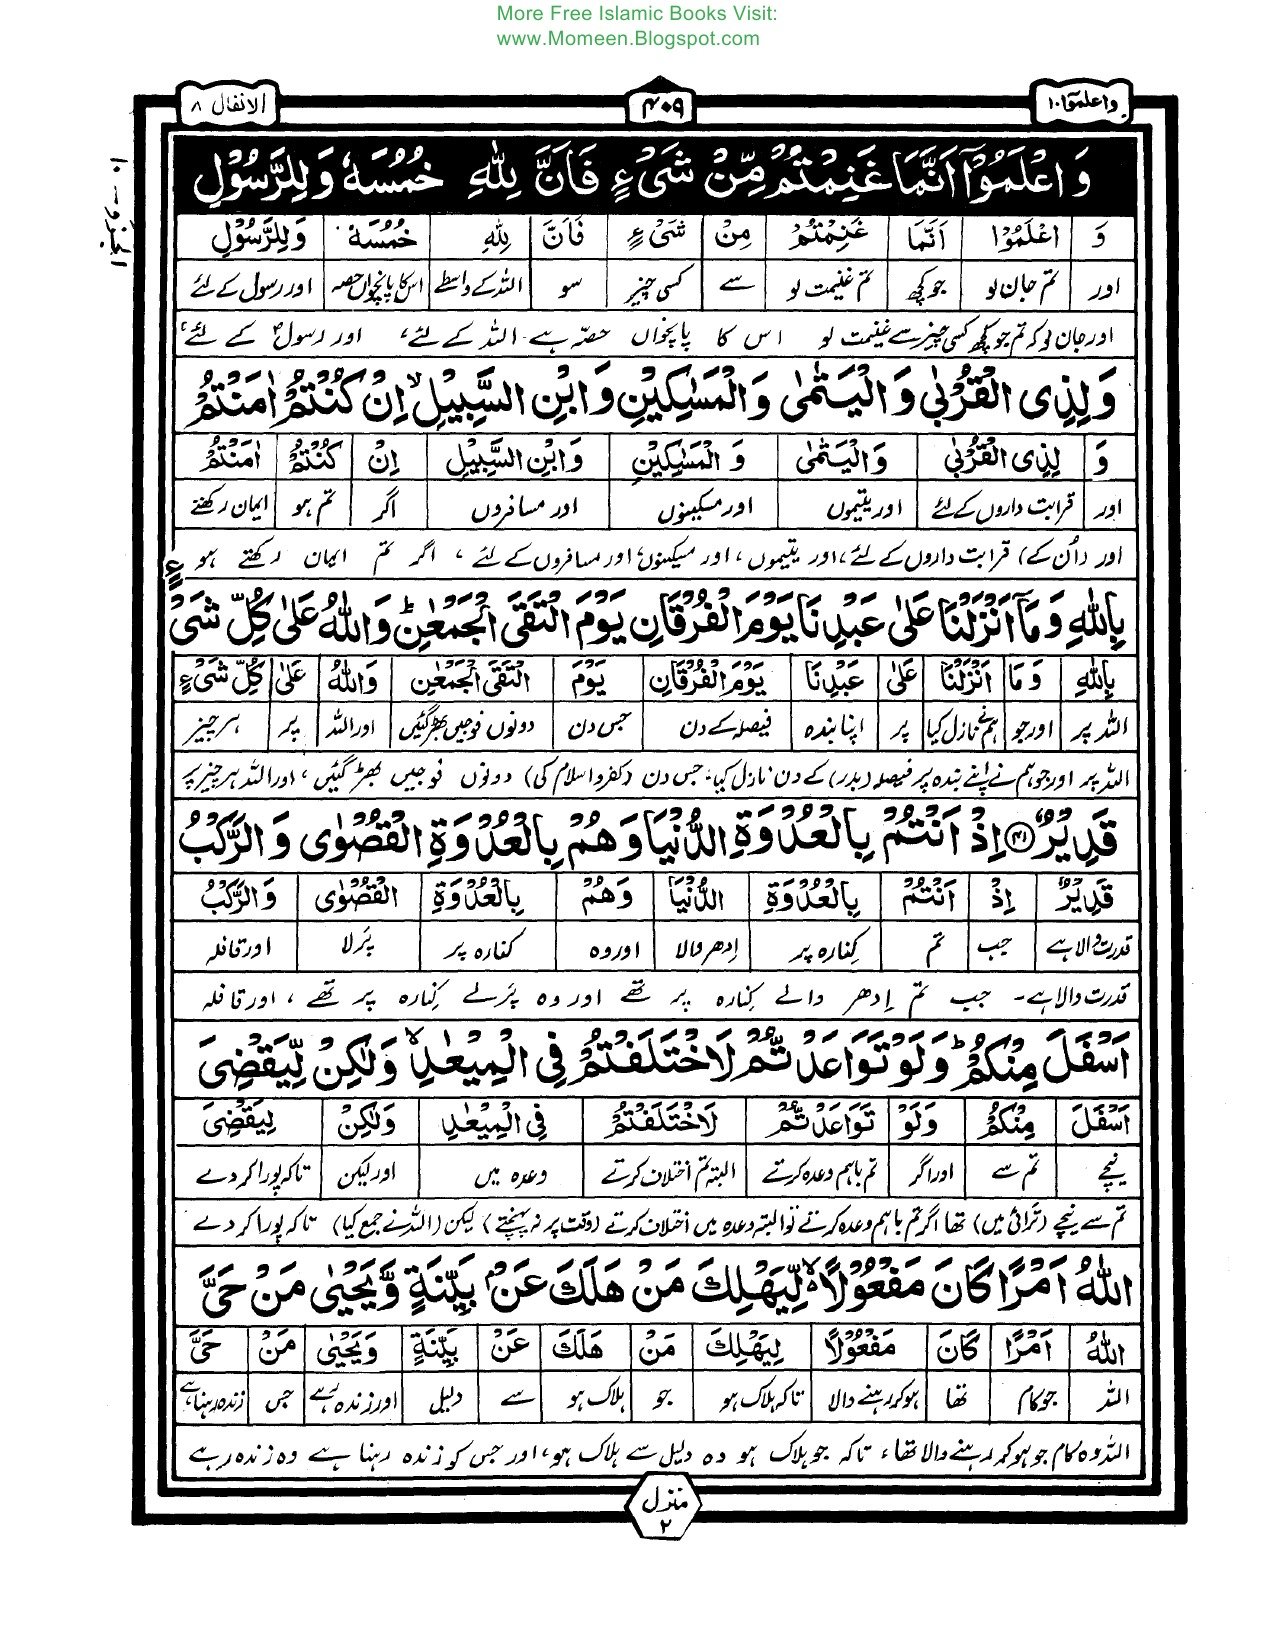 More Free Islamic Books Visit:
www.Momeen.Blogspot.com
واعلموٓا ١٠
۴۰۹
الانفال ٨
الجزو ـ ١٠
وَ اعْلَمُوْۤا اَنَّمَا غَنِمْتُمْ مِّنْ شَیْءٍ فَاَنَّ لِلّٰهِ خُمُسَهٗ وَ لِلرَّسُوْلِ
وَ اعْلَمُوْۤا اَنَّمَا غَنِمْتُمْ مِنْ شَیْءٍ فَاَنَّ لِلّٰهِ خُمُسَهٗ وَلِلرَّسُوْلِ
اور تم جان لو جو کچھ تم غنیمت لو سے کسی چیز سو اللہ کے واسطے اس کا پانچواں حصہ اور رسول کے لئے
اور جان لو کہ تم جو کچھ کسی چیز سے غنیمت لو اس کا پانچواں حصّہ ہے اللہ کے لئے، اور رسولؐ کے لئے،
وَ لِذِی الْقُرْبٰی وَ الْیَتٰمٰی وَ الْمَسٰکِیْنِ وَ ابْنِ السَّبِیْلِ ۙ اِنْ کُنْتُمْ اٰمَنْتُمْ
وَ لِذِی الْقُرْبٰی وَالْیَتٰمٰی وَ الْمَسٰکِیْنِ وَابْنِ السَّبِیْلِ اِنْ کُنْتُمْ اٰمَنْتُمْ
اور قرابت داروں کے لئے اور یتیموں اور مسکینوں اور مسافروں اگر تم ہو ایمان رکھتے
اور (اُن کے) قرابت داروں کے لئے، اور یتیموں، اور مسکینوں اور مسافروں کے لئے، اگر تم ایمان رکھتے ہو
بِاللّٰهِ وَ مَاۤ اَنْزَلْنَا عَلٰی عَبْدِنَا یَوْمَ الْفُرْقَانِ یَوْمَ الْتَقَی الْجَمْعٰنِ ؕ وَ اللّٰهُ عَلٰی کُلِّ شَیْءٍ
بِاللّٰهِ وَمَا اَنْزَلْنَا عَلٰی عَبْدِنَا یَوْمَ الْفُرْقَانِ یَوْمَ الْتَقَی الْجَمْعٰنِ وَاللّٰهُ عَلٰی کُلِّ شَیْءٍ
اللہ پر اور جو ہم نے نازل کیا پر اپنا بندہ فیصلہ کے دن جس دن دونوں فوجیں بھڑ گئیں اور اللہ پر ہر چیز
اللہ پر اور جو ہم نے اپنے بندہ پر فیصلہ (بدر) کے دن نازل کیا۔ جس دن (کفر و اسلام کی) دونوں فوجیں بھڑ گئیں، اور اللہ ہر چیز پر
قَدِیْرٌ ﴿۴۱﴾ اِذْ اَنْتُمْ بِالْعُدْوَةِ الدُّنْیَا وَ هُمْ بِالْعُدْوَةِ الْقُصْوٰی وَ الرَّکْبُ
قَدِیْرٌ اِذْ اَنْتُمْ بِالْعُدْوَةِ الدُّنْیَا وَهُمْ بِالْعُدْوَةِ الْقُصْوٰی وَالرَّکْبُ
قدرت والا ہے جب تم کنارہ پر اِدھر والا اور وہ کنارہ پر پَرلا اور قافلہ
قدرت والا ہے۔ جب تم اِدھر والے کنارہ پر تھے اور وہ پَرلے کنارہ پر تھے، اور قافلہ
اَسْفَلَ مِنْکُمْ ؕ وَ لَوْ تَوَاعَدْتُّمْ لَاخْتَلَفْتُمْ فِی الْمِیْعٰدِ ۙ وَ لٰکِنْ لِّیَقْضِیَ
اَسْفَلَ مِنْکُمْ وَلَوْ تَوَاعَدْتُّمْ لَاخْتَلَفْتُمْ فِی الْمِیْعٰدِ وَلٰکِنْ لِیَقْضِیَ
نیچے تم سے اور اگر تم باہم وعدہ کرتے البتہ تم اختلاف کرتے وعدہ میں اور لیکن تاکہ پورا کر دے
تم سے نیچے (ترائی میں) تھا اگر تم باہم وعدہ کرتے تو البتہ وعدہ میں اختلاف کرتے (وقت پر نہ پہنچتے) لیکن (اللہ نے جمع کیا) تاکہ پورا کر دے
اللّٰهُ اَمْرًا کَانَ مَفْعُوْلًا ۙ۬ لِّیَهْلِکَ مَنْ هَلَکَ عَنْۢ بَیِّنَةٍ وَّ یَحْیٰی مَنْ حَیَّ
اللّٰهُ اَمْرًا کَانَ مَفْعُوْلًا لِیَهْلِکَ مَنْ هَلَکَ عَنْ بَیِّنَةٍ وَیَحْیٰی مَنْ حَیَّ
اللہ جو کام تھا ہو کر رہنے والا تاکہ ہلاک ہو جو ہلاک ہو سے دلیل اور زندہ رہے جس زندہ رہنا ہے
اللہ وہ کام جو ہو کر رہنے والا تھا، تاکہ جو ہلاک ہو وہ دلیل سے ہلاک ہو، اور جس کو زندہ رہنا ہے وہ زندہ رہے
منزل
۲